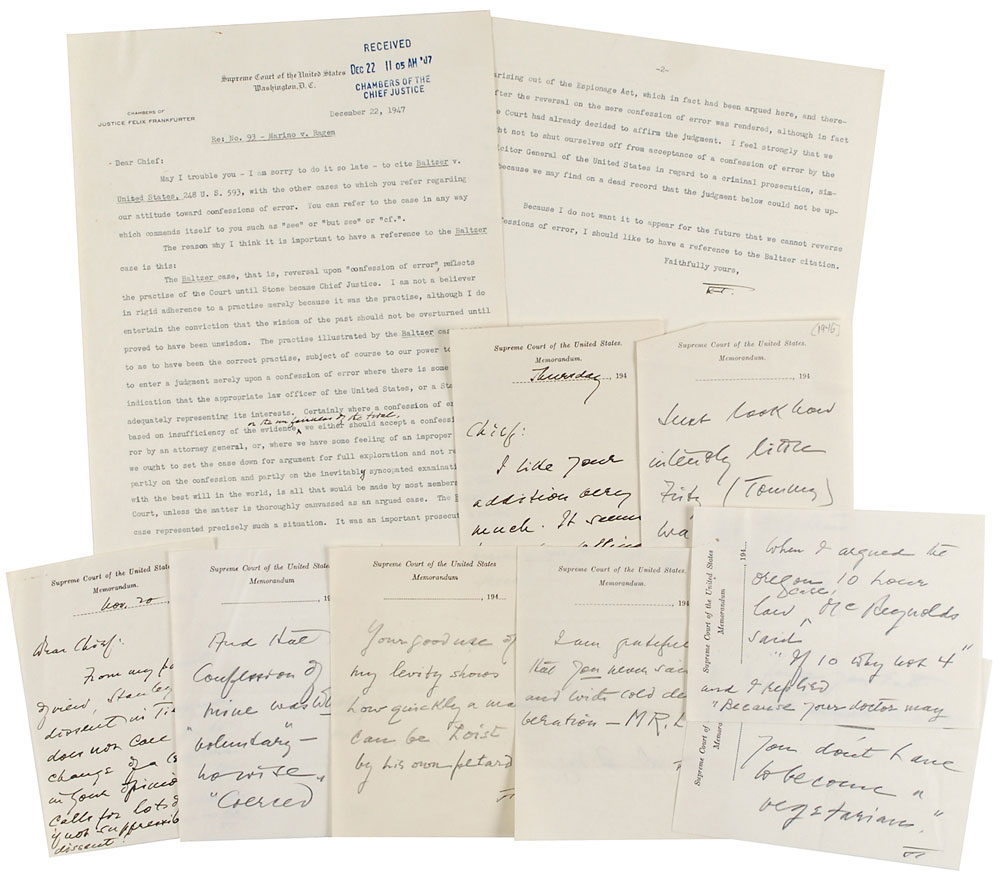 RECEIVED
DEC 22 11 05 AM '47
CHAMBERS OF THE
CHIEF JUSTICE
Supreme Court of the United States
Washington, D. C.
CHAMBERS OF
JUSTICE FELIX FRANKFURTER
December 22, 1947
Re: No. 93 - Marino v. Ragen
Dear Chief:
May I trouble you - I am sorry to do it so late - to cite Baltzer v.
United States, 248 U. S. 593, with the other cases to which you refer regarding
our attitude toward confessions of error. You can refer to the case in any way
which commends itself to you such as "see" or "but see" or "cf.".
The reason why I think it is important to have a reference to the Baltzer
case is this:
The Baltzer case, that is, reversal upon "confession of error", reflects
the practise of the Court until Stone became Chief Justice. I am not a believer
in rigid adherence to a practise merely because it was the practise, although I do
entertain the conviction that the wisdom of the past should not be overturned until
proved to have been unwisdom. The practise illustrated by the Baltzer cas
to me to have been the correct practise, subject of course to our power to
to enter a judgment merely upon a confession of error where there is some
indication that the appropriate law officer of the United States, or a Sta
adequately representing its interests. Certainly where a confession of er
or the unfairness of the trial,
based on insufficiency of the evidence, we either should accept a confessi
ror by an attorney general, or, where we have some feeling of an improper
we ought to set the case down for argument for full exploration and not re
partly on the confession and partly on the inevitably syncopated examinati
with the best will in the world, is all that would be made by most members
Court, unless the matter is thoroughly canvassed as an argued case. The
case represented precisely such a situation. It was an important prosecut
-2-
arising out of the Espionage Act, which in fact had been argued here, and there-
fter the reversal on the mere confession of error was rendered, although in fact
e Court had already decided to affirm the judgment. I feel strongly that we
ght not to shut ourselves off from acceptance of a confession of error by the
icitor General of the United States in regard to a criminal prosecution, sim-
because we may find on a dead record that the judgment below could not be up-
Because I do not want it to appear for the future that we cannot reverse
fessions of error, I should like to have a reference to the Baltzer citation.
Faithfully yours,
Supreme Court of the United States.
Memorandum.
Thursday, 194
Chief:
I like your
addition very
much. It seem
(1946)
Supreme Court of the United States.
Memorandum.
, 194
Just look how
intently little
(Tommy)
wa
Supreme Court of the United States
Memorandum.
Nov. 20
Dear Chief:
From my
view, Stanley
dissent in
does not call
change of a
in your opinio
calls for lots
if not suppressib
dissent!
Supreme Court of the United States.
Memorandum.
, 19
And that
Confession of
mine was
"voluntary" -
no wise
"Coerced
Supreme Court of the United States.
Memorandum
, 194
Your good use of
my levity shows
how quickly a ma
can be "hoist
by his own petard
Supreme Court of the United States.
Memorandum.
, 194
I am grateful
that you never sai
and with cold de
beration - MR. L
Supreme Court of the United States
Memorandum
194
When I argued the
Oregon 10 hour
law case, McReynolds
said
"If 10 why not 4"
and I replied
"Because your doctor may
Supreme Court of
Memora
You don't have
to become a
vegetarian."